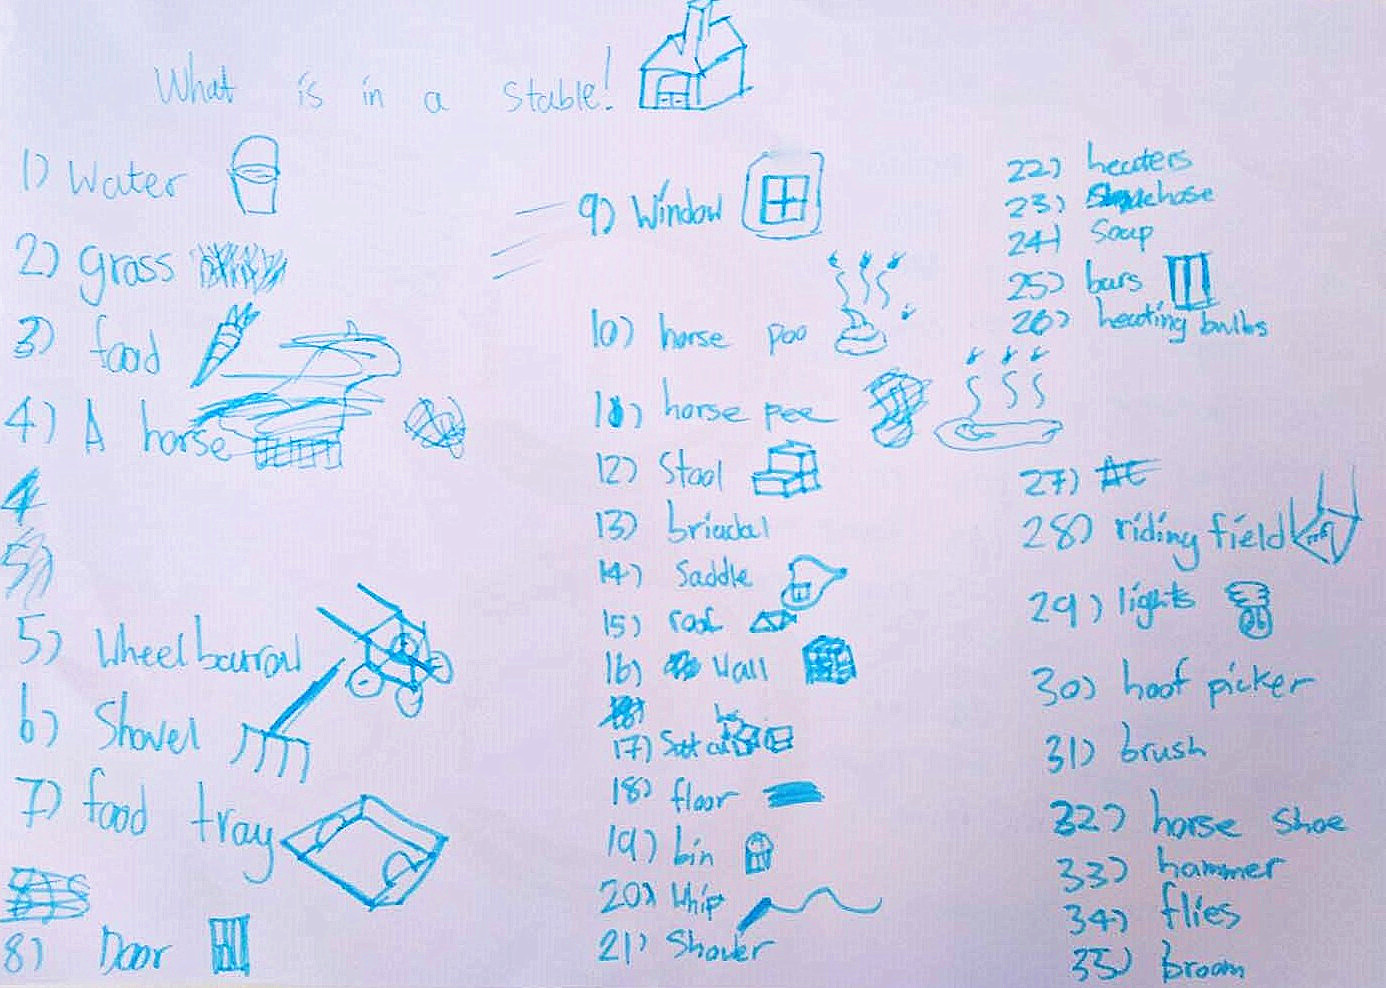 What is in a stable!
1) Water
2) grass
3) food
4) A horse
5) Wheelbarrow
6) Shovel
7) food tray
8) Door
9) Window
10) horse poo
11) horse pee
12) Stool
13) briadal
14) Saddle
15) roof
16) Wall
17)
18) floor
19) bin
20) Whip
21) Shower
22) heaters
23) hose
24) Soap
25) bars
26) heating bulbs
27) AC
28) riding field
29) lights
30) hoof picker
31) brush
32) horse shoe
33) hammer
34) flies
35) broom